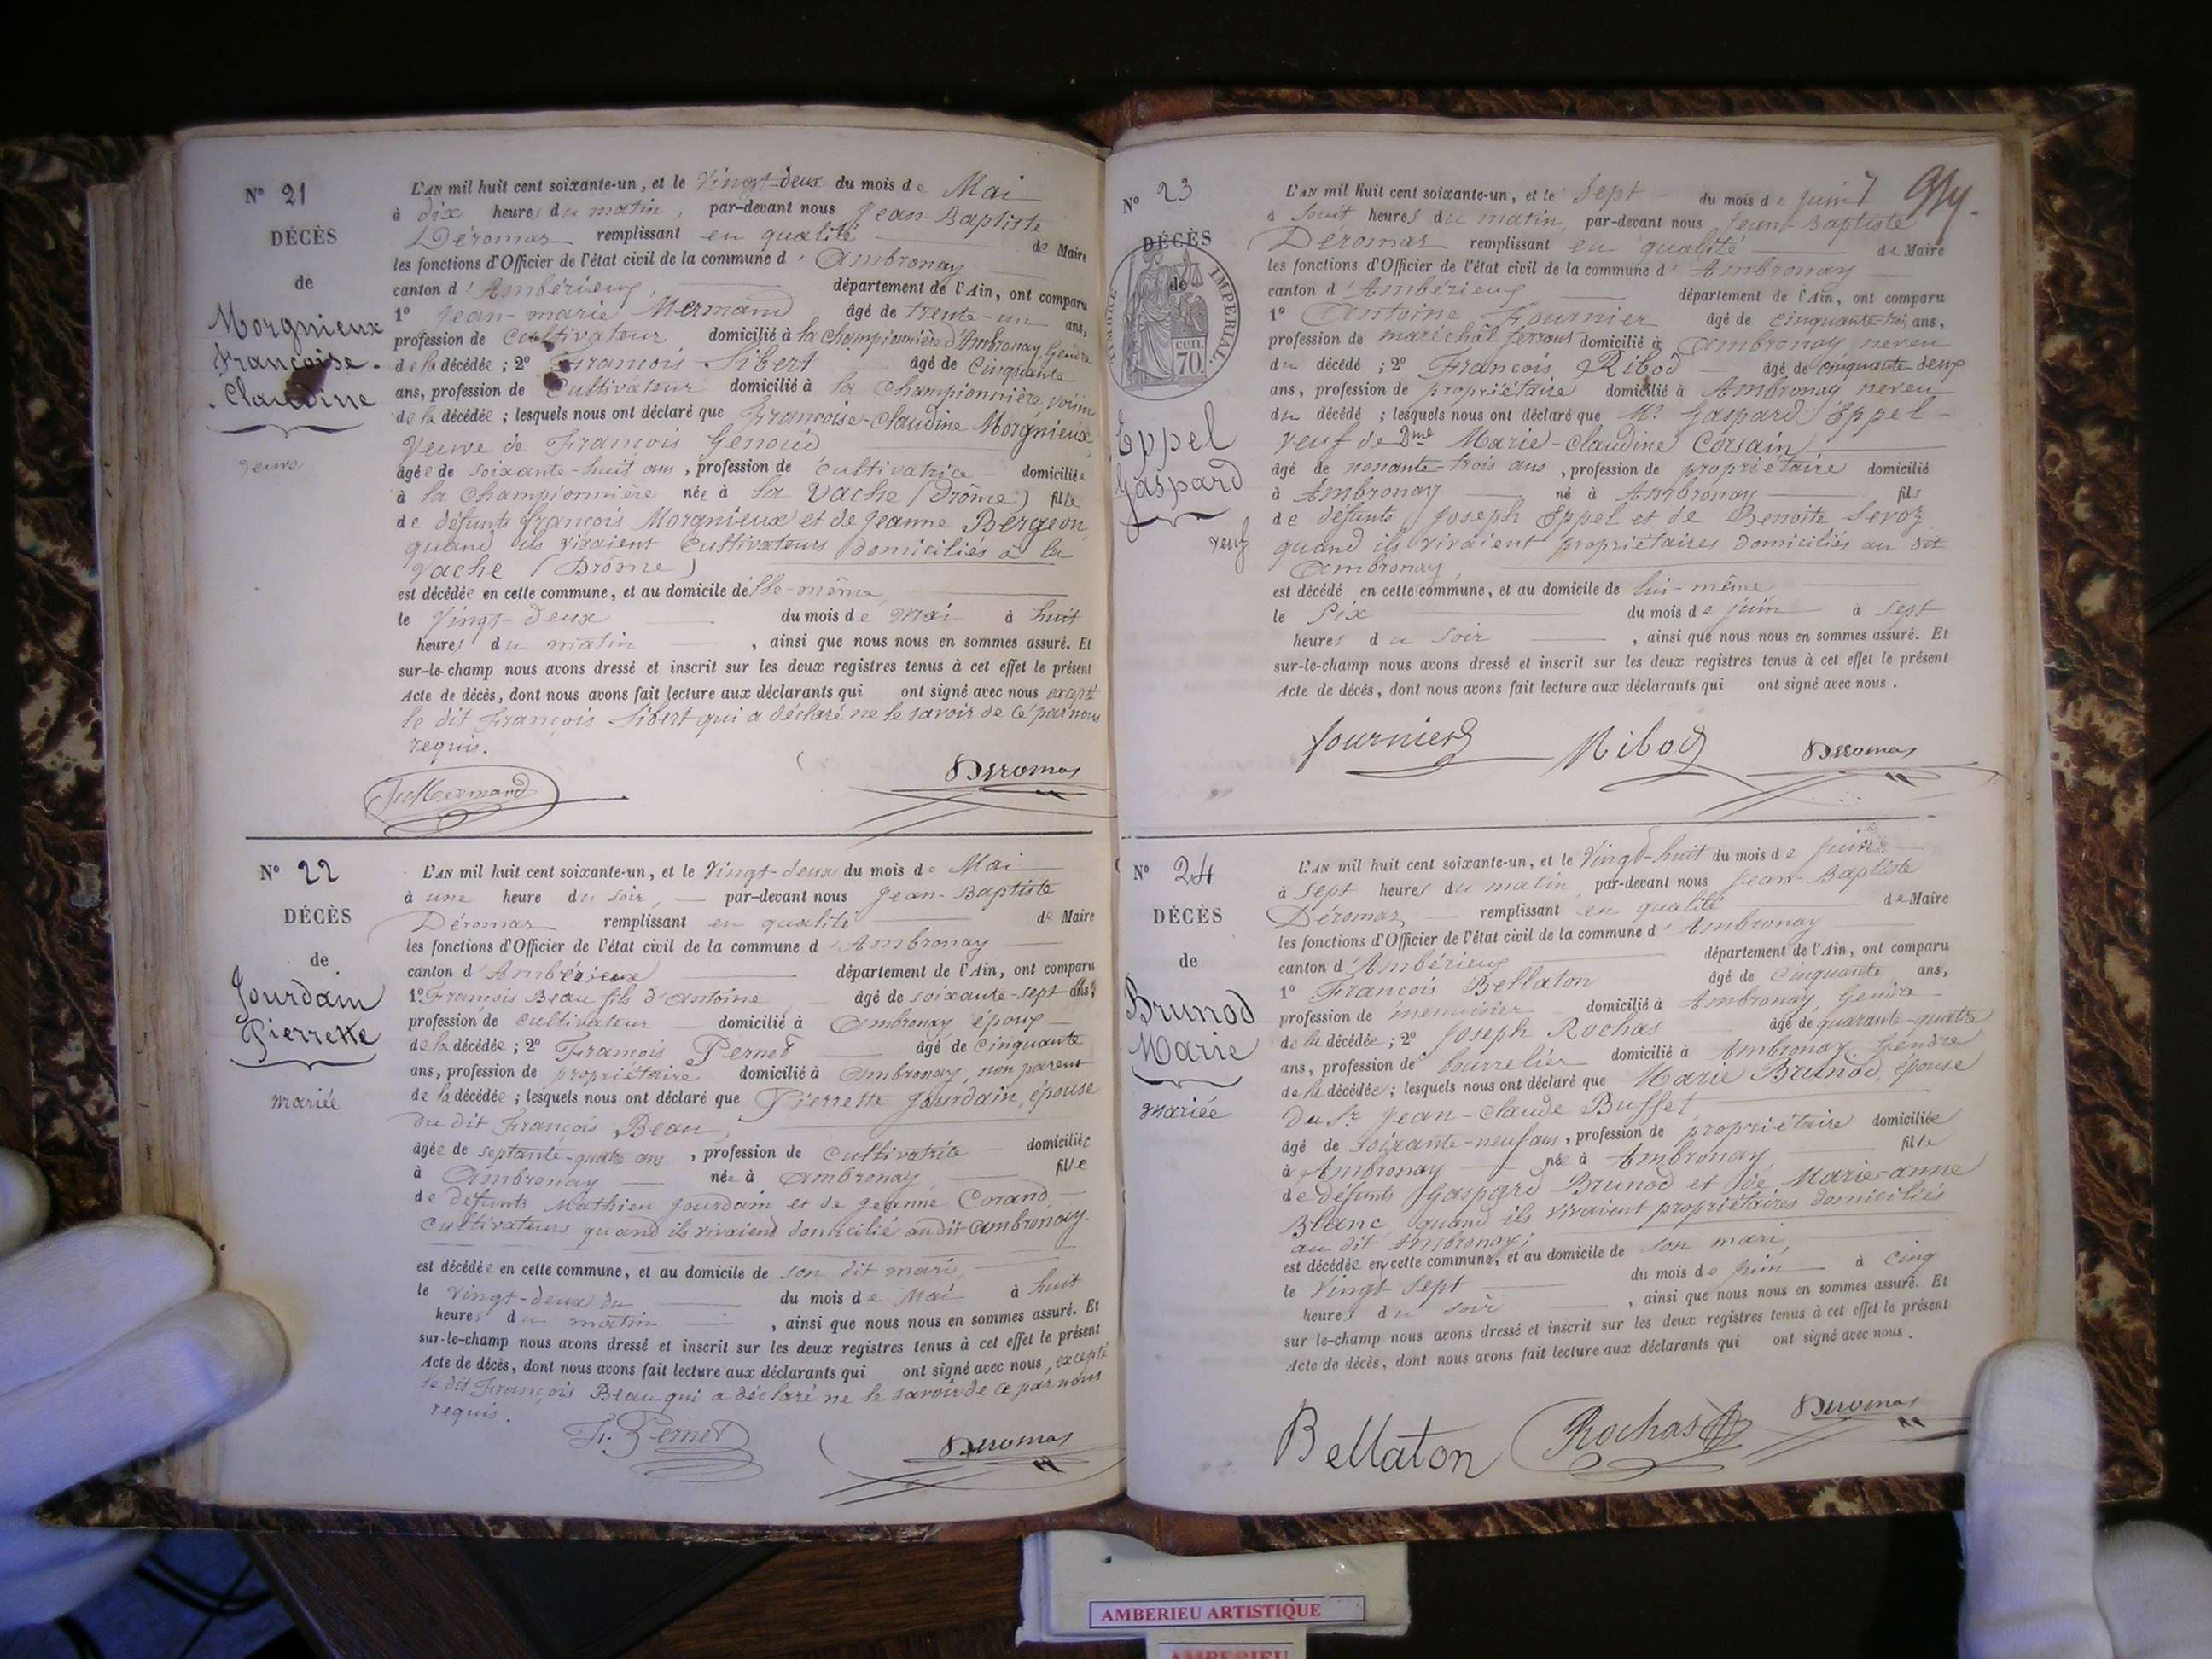 N° 21
DÉCÈS
de
Morgnieux
Françoise-
Claudine
veuve
L'AN mil huit cent soixante-un, et le Vingt-deux du mois de Mai
à dix heures du matin, par-devant nous Jean-Baptiste
Déromas remplissant en qualité de Maire
les fonctions d'Officier de l'état civil de la commune d'Ambronay
canton d'Ambérieux, département de l'Ain, ont comparu
1° Jean-marie Mermand âgé de trente-un ans,
profession de cultivateur domicilié à la championnière d'Ambronay, Gendre
de la décédée; 2° François Sibert âgé de Cinquante
ans, profession de Cultivateur domicilié à la Championnière, voisin
de la décédée; lesquels nous ont déclaré que Françoise-Claudine Morgnieux
Veuve de François Genoud
âgée de soixante-huit ans, profession de cultivatrice domiciliée
à la championnière née à la Vache (Drôme) fille
de défunts françois Morgnieux et de Jeanne Bergeon,
quand ils vivaient Cultivateurs domiciliés à la
Vache (Drôme)
est décédée en cette commune, et au domicile d'elle-même,
le Vingt-deux du mois de Mai à huit
heures du matin, ainsi que nous nous en sommes assuré. Et
sur-le-champ nous avons dressé et inscrit sur les deux registres tenus à cet effet le présent
Acte de décès, dont nous avons fait lecture aux déclarants qui ont signé avec nous excepté
le dit François Sibert qui a déclaré ne le savoir de ce par nous
requis.
Mermand Deromas
N° 22
DÉCÈS
de
Jourdain
Pierrette
mariée
L'AN mil huit cent soixante-un, et le Vingt-deux du mois de Mai
à une heure du soir, par-devant nous Jean-Baptiste
Déromas remplissant en qualité de Maire
les fonctions d'Officier de l'état civil de la commune d'Ambronay
canton d'Ambérieux département de l'Ain, ont comparu
1° François Beau fils d'antoine âgé de soixante-sept ans,
profession de cultivateur domicilié à Ambronay, époux
de la décédée; 2° François Pernet âgé de Cinquante
ans, profession de propriétaire domicilié à Ambronay, non parent
de la décédée; lesquels nous ont déclaré que Pierrette Jourdain, épouse
du dit François Beau,
âgée de septante-quatre ans, profession de cultivatrice domiciliée
à Ambronay née à Ambronay fille
de défunts Mathieu Jourdain et de Jeanne Corand,
Cultivateurs quand ils vivaiend domicilié audit Ambronay.
est décédée en cette commune, et au domicile de son dit mari,
le vingt-deux du du mois de Mai à huit
heures du matin, ainsi que nous nous en sommes assuré. Et
sur-le-champ nous avons dressé et inscrit sur les deux registres tenus à cet effet le présent
Acte de décès, dont nous avons fait lecture aux déclarants qui ont signé avec nous, excepté
le dit François Beau qui a déclaré ne le savoir de ce par nous
requis.
F. Pernet Deromas
N° 23
DÉCÈS
de
TIMBRE IMPÉRIAL
70 cen.
Eppel
Gaspard
veuf
L'AN mil huit cent soixante-un, et le Sept du mois de Juin
à huit heures du matin, par-devant nous Jean-Baptiste
Déromas remplissant en qualité de Maire
les fonctions d'Officier de l'état civil de la commune d'Ambronay
canton d'Ambérieux département de l'Ain, ont comparu
1° Antoine Fournier âgé de cinquante-trois ans,
profession de maréchal ferrant domicilié à Ambronay neveu
du décédé; 2° François Ribod âgé de cinquante deux
ans, profession de propriétaire domicilié à Ambronay neveu
du décédé; lesquels nous ont déclaré que Mr. Gaspard Eppel
veuf de Dme Marie-claudine Corsain
âgé de nonante-trois ans, profession de propriétaire domicilié
à Ambronay né à Ambronay fils
de défunts Joseph Eppel et de Benoite Sevoz
quand ils vivaient propriétaires domiciliés au dit
Ambronay,
est décédé en cette commune, et au domicile de lui-même
le Six du mois de juin à sept
heures du soir, ainsi que nous nous en sommes assuré. Et
sur-le-champ nous avons dressé et inscrit sur les deux registres tenus à cet effet le présent
Acte de décès, dont nous avons fait lecture aux déclarants qui ont signé avec nous.
fournier Ribod Deromas
N° 24
DÉCÈS
de
Brunod
Marie
mariée
L'AN mil huit cent soixante-un, et le Vingt-huit du mois de Juin
à sept heures du matin, par-devant nous Jean-Baptiste
Déromas remplissant en qualité de Maire
les fonctions d'Officier de l'état civil de la commune d'Ambronay
canton d'Ambérieux département de l'Ain, ont comparu
1° François Bellaton âgé de Cinquante ans,
profession de menuisier domicilié à Ambronay, Gendre
de la décédée; 2° Joseph Rochas âgé de quarante-quatre
ans, profession de bourrelier domicilié à Ambronay, Gendre
de la décédée; lesquels nous ont déclaré que Marie Brunod, épouse
du Sr. Jean-Claude Buffet
âgé de soixante-neuf ans, profession de propriétaire domiciliée
à Ambronay née à Ambronay fille
de défunts Gaspard Brunod et de Marie-anne
Blanc quand ils vivaient propriétaires domiciliés
au dit Ambronay;
est décédée en cette commune, et au domicile de son mari,
le Vingt sept du mois de juin à cinq
heures du soir, ainsi que nous nous en sommes assuré. Et
sur le-champ nous avons dressé et inscrit sur les deux registres tenus à cet effet le présent
Acte de décès, dont nous avons fait lecture aux déclarants qui ont signé avec nous.
Bellaton Rochas Deromas
AMBERIEU ARTISTIQUE
AMBERIEU